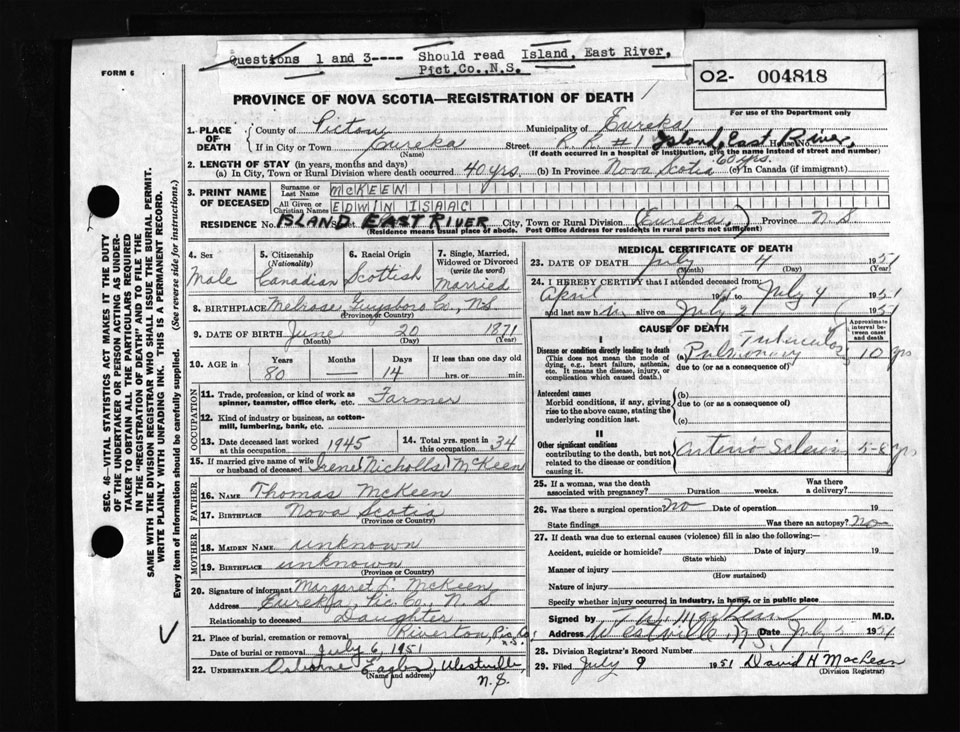 Questions 1 and 3---- Should read Island, East River,
Pict.Co.,N.S.
FORM 6
O2- 004818
For use of the Department only
PROVINCE OF NOVA SCOTIA—REGISTRATION OF DEATH
1. PLACE OF DEATH
County of Pictou Municipality of Eureka
If in City or Town Eureka (Name) Street R.R. #1 Island, East River, House No.
(If death occurred in a hospital or institution, give the name instead of street and number)
2. LENGTH OF STAY (in years, months and days)
(a) In City, Town or Rural Division where death occurred 40 yrs. (b) In Province Nova Scotia 60 yrs. (c) In Canada (if immigrant)
3. PRINT NAME OF DECEASED
Surname or Last Name MCKEEN
All Given or Christian Names EDWIN ISAAC
RESIDENCE No. ISLAND EAST RIVER Street City, Town or Rural Division (Eureka,) Province N.S.
(Residence means usual place of abode. Post Office Address for residents in rural parts not sufficient)
4. Sex Male
5. Citizenship (Nationality) Canadian
6. Racial Origin Scottish
7. Single, Married, Widowed or Divorced (write the word) Married
8. BIRTHPLACE Melrose Guysboro Co., N.S
(Province or Country)
9. DATE OF BIRTH June 20 1871
(Month) (Day) (Year)
10. AGE in Years 80 Months Days 14 If less than one day old hrs. or min.
OCCUPATION
11. Trade, profession, or kind of work as spinner, teamster, office clerk, etc. Farmer
12. Kind of industry or business, as cotton-mill, lumbering, bank, etc.
13. Date deceased last worked at this occupation 1945 14. Total yrs. spent in this occupation 34
15. If married give name of wife or husband of deceased Irene Nicholls McKeen
FATHER
16. NAME Thomas McKeen
17. BIRTHPLACE Nova Scotia
(Province or Country)
MOTHER
18. MAIDEN NAME unknown
19. BIRTHPLACE unknown
(Province or Country)
20. Signature of informant Margaret J. McKeen
Address Eureka, Pic. Co. N.S
Relationship to deceased Daughter
21. Place of burial, cremation or removal Riverton, Pic, Co. N.S.
Date of burial or removal July 6, 1951
22. UNDERTAKER Osborne Eagles, Westville, N.S.
(Name and address)
MEDICAL CERTIFICATE OF DEATH
23. DATE OF DEATH July 4 1951
(Month) (Day) (Year)
24. I HEREBY CERTIFY that I attended deceased from
April 19 to July 4 1951
and last saw h alive on July 2 1951
CAUSE OF DEATH
Approximate interval between onset and death
I
Disease or condition directly leading to death
(This does not mean the mode of dying, e.g., heart failure, asthenia, etc. It means the disease, injury, or complication which caused death.)
(a) Pulmonary Tuberculosis 10 yrs
due to (or as a consequence of)
Antecedent causes
Morbid conditions, if any, giving rise to the above cause, stating the underlying condition last.
(b)
due to (or as a consequence of)
(c)
II
Other significant conditions
contributing to the death, but not related to the disease or condition causing it.
Arterio Sclerosis 5-8 yrs
25. If a woman, was the death associated with pregnancy? Duration weeks. Was there a delivery?
26. Was there a surgical operation No Date of operation 19
State findings Was there an autopsy? No
27. If death was due to external causes (violence) fill in also the following:
Accident, suicide or homicide? Date of injury 19
(State which)
Manner of injury
(How sustained)
Nature of injury
Specify whether injury occurred in industry, in home, or in public place
Signed by M.D.
Address Westville, N.S. Date July 5 1951
28. Division Registrar's Record Number
29. Filed July 9 1951 David H MacLean
(Division Registrar)
SEC. 46—VITAL STATISTICS ACT MAKES IT THE DUTY
OF THE UNDERTAKER OR PERSON ACTING AS UNDER-
TAKER TO OBTAIN ALL THE PARTICULARS REQUIRED
IN THE "REGISTRATION OF DEATH" AND TO FILE THE
SAME WITH THE DIVISION REGISTRAR WHO SHALL ISSUE THE BURIAL PERMIT.
WRITE PLAINLY WITH UNFADING INK. THIS IS A PERMANENT RECORD.
Every item of information should be carefully supplied. (See reverse side for instructions.)